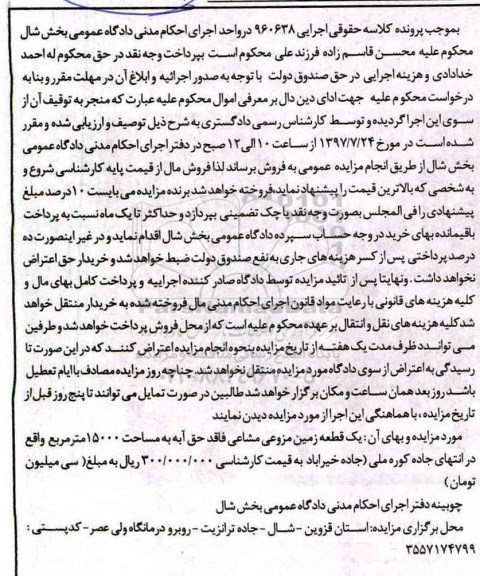 بموجب پرونده کلاسه حقوقی اجرایی ۹۶۰۶۳۸ درواحد اجرای احکام مدنی دادگاه عمومی بخش شال
محکوم علیه محسن قاسم زاده فرزند علی محکوم است بپرداخت وجه نقد در حق محکوم له احمد
خدادادی و هزینه اجرایی در حق صندوق دولت با توجه به صدور اجرائیه و ابلاغ آن در مهلت مقرر و بنا به
درخواست محکوم علیه جهت ادای دین دال بر معرفی اموال محکوم علیه عبارت که منجر به توقیف آن از
سوی این اجرا گردیده و توسط کارشناس رسمی دادگستری به شرح ذیل توصیف و ارزیابی شده و مقرر
شده است در مورخ ۱۳۹۷/۷/۲۴ از ساعت ۱۰ الی ۱۲ صبح در دفتر اجرای احکام مدنی دادگاه عمومی
بخش شال از طریق انجام مزایده عمومی به فروش برساند لذا فروش مال از قیمت پایه کارشناسی شروع و
به شخصی که بالاترین قیمت را پیشنهاد نماید، فروخته خواهد شد برنده مزایده می بایست ۱۰ درصد مبلغ
پیشنهادی را فی المجلس بصورت وجه نقد یا چک تضمینی بپردازد و حداکثر تا یک ماه نسبت به پرداخت
باقیمانده بهای خرید در وجه حساب سپرده دادگاه عمومی بخش شال اقدام نماید و در غیر اینصورت ده
درصد پرداختی پس از کسر هزینه های جاری به نفع صندوق دولت ضبط خواهد شد و خریدار حق اعتراض
نخواهد داشت. ونهایتا پس از تائید مزایده توسط دادگاه صادر کننده اجراییه و پرداخت کامل بهای مال و
کلیه هزینه های قانونی با رعایت مواد قانون اجرای احکام مدنی مال فروخته شده به خریدار منتقل خواهد
شد کلیه هزینه های نقل و انتقال بر عهده محکوم علیه است که از محل فروش پرداخت خواهد شد و طرفین
می توانند ظرف مدت یک هفته از تاریخ مزایده بنحوه انجام مزایده اعتراض کنند که در این صورت تا
رسیدگی به اعتراض از سوی دادگاه مورد مزایده منتقل نخواهد شد. چناچه روز مزایده مصادف با ایام تعطیل
باشد روز بعد همان ساعت و مکان برگزار خواهد شد طالبین در صورت تمایل می توانند تا پنج روز قبل از
تاریخ مزایده، با هماهنگی این اجرا از مورد مزایده دیدن نمایند
مورد مزایده و بهای آن: یک قطعه زمین مزوعی مشاعی فاقد حق آبه به مساحت ۱۵۰۰۰ مترمربع واقع
در انتهای جاده کوره ملی (جاده خیراباد به قیمت کارشناسی ۳۰۰/۰۰۰/۰۰۰ ریال به مبلغ( سی میلیون
تومان )
چوبینه دفتر اجرای احکام مدنی دادگاه عمومی بخش شال
محل برگزاری مزایده: استان قزوین - شال - جاده ترانزیت - روبرو درمانگاه ولی عصر- کدپستی:
۳۵۵۷۱۷۴۷۹۹